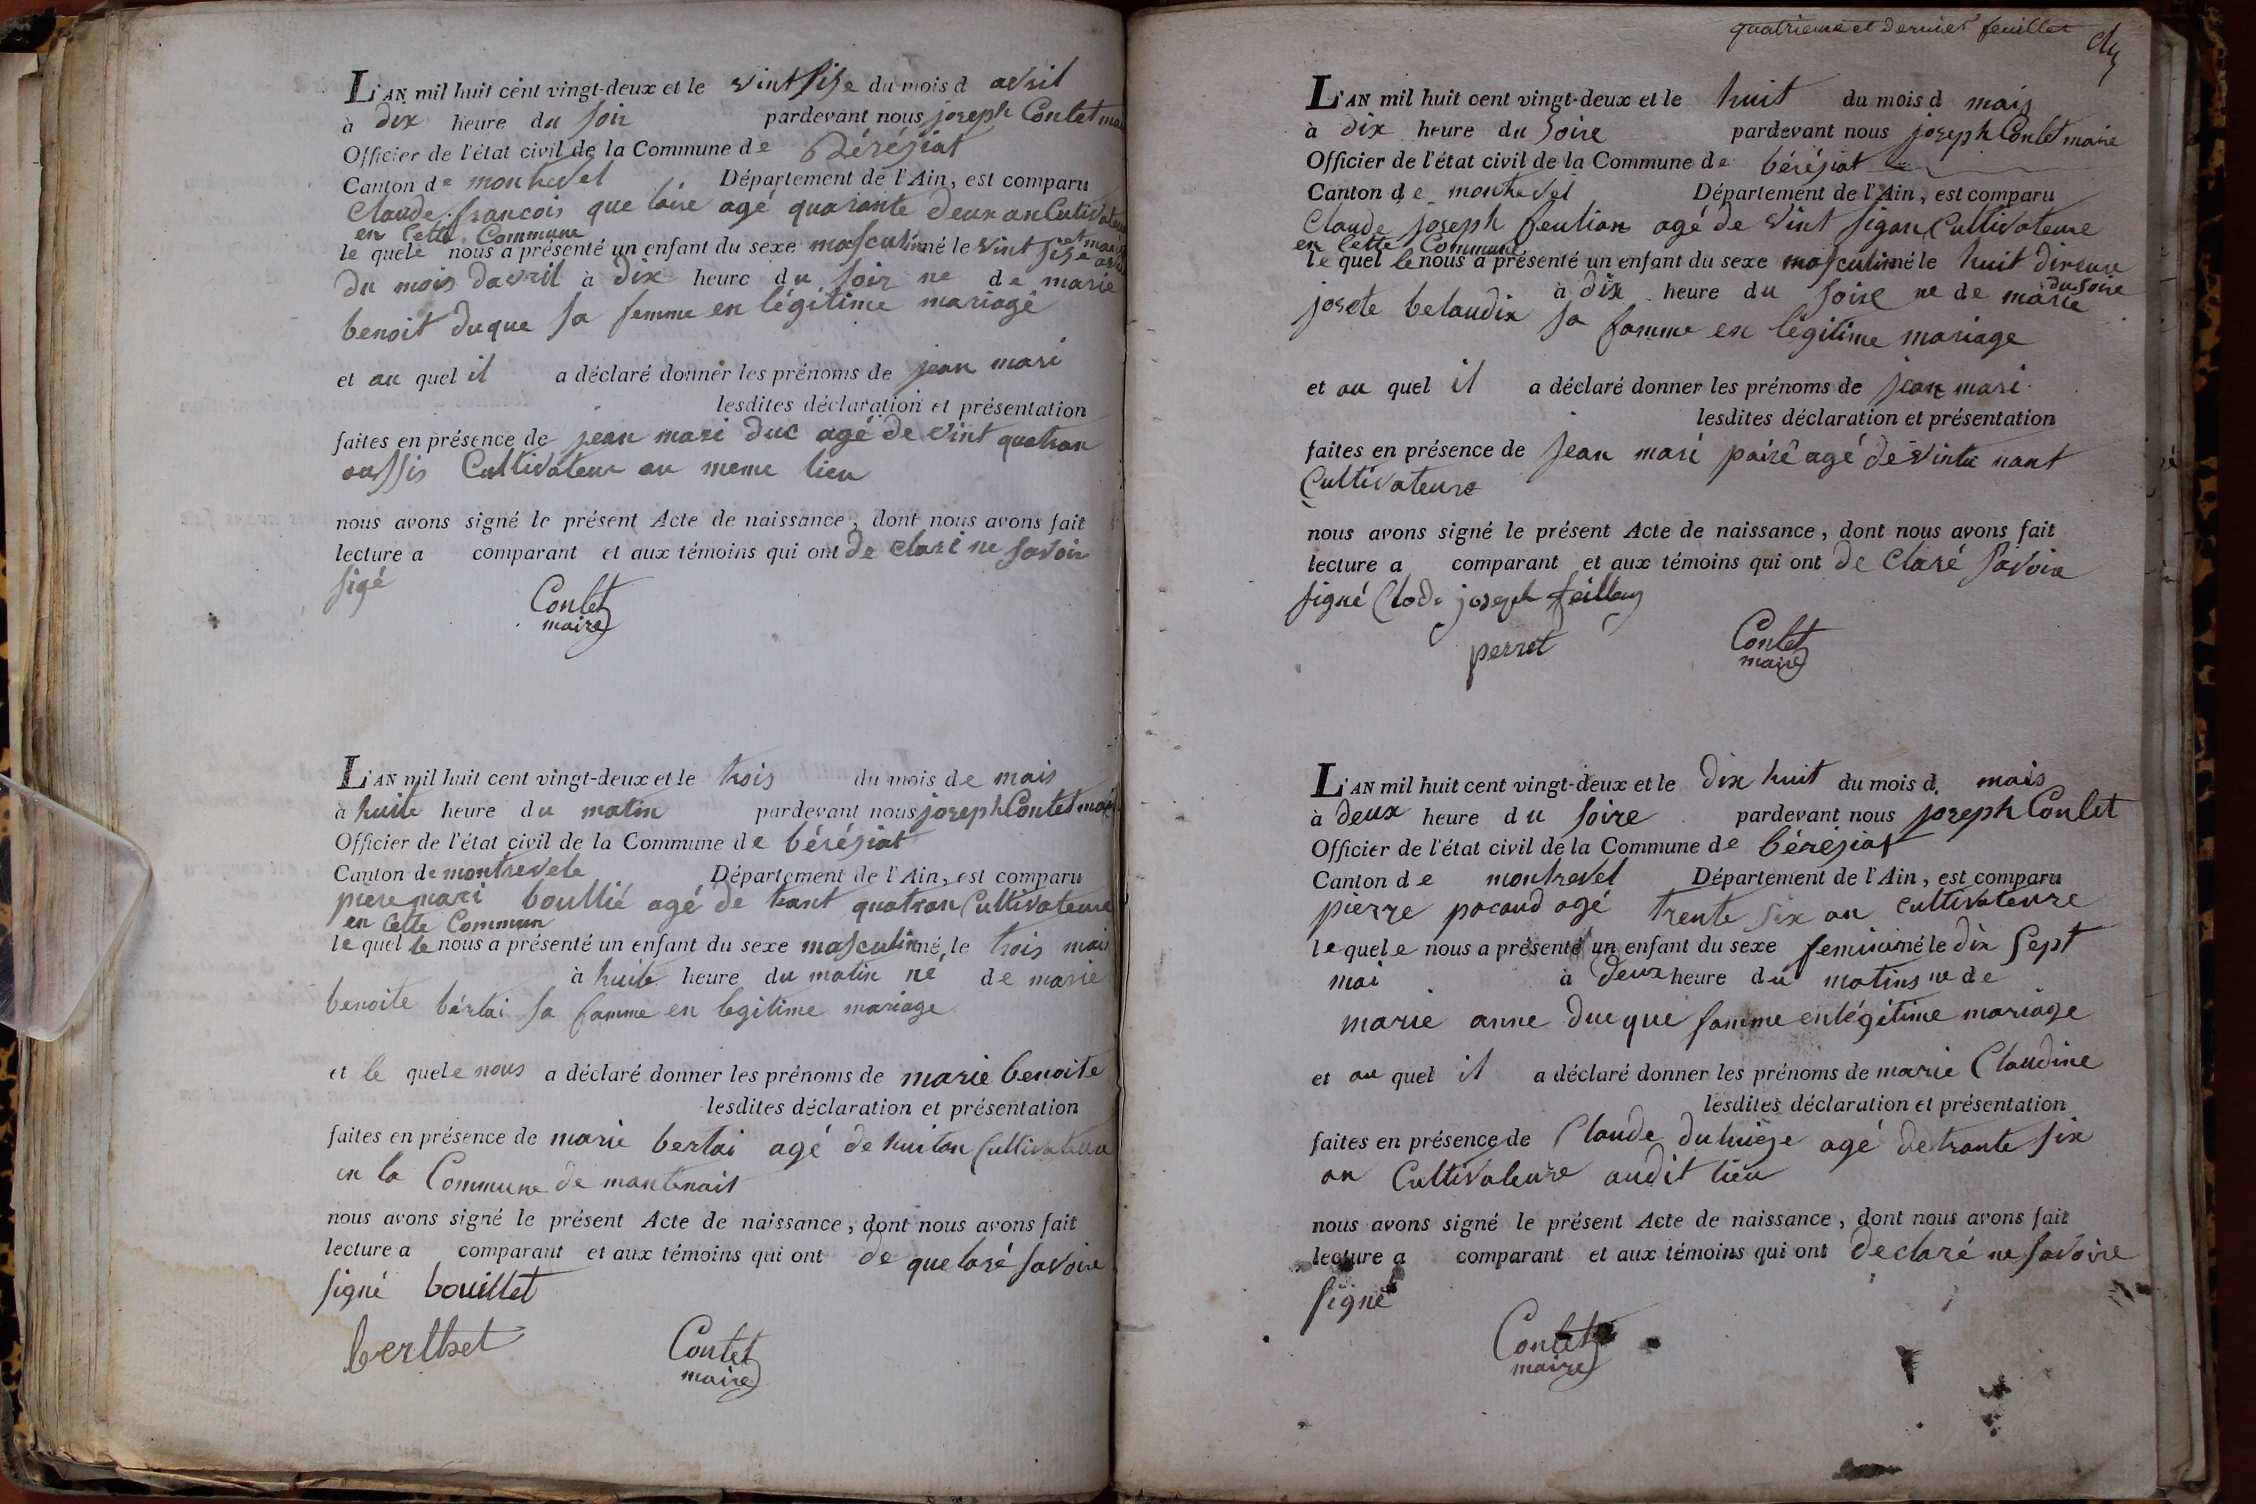 L'AN mil huit cent vingt-deux et le vint sise du mois d avril
à dix heure du soir pardevant nous joseph Contet
Officier de l'état civil de la Commune de Bérésiat
Canton de montrevel Département de l'Ain, est comparu
Claude francois que laire agé quarante deux an Cultivateur
en Cette Commune
le quele nous a présenté un enfant du sexe masculin né le vint sise
du mois davril à dix heure du soir ne de marie
benoit duque sa femme en légitime mariage
et au quel il a déclaré donner les prénoms de jean mari
lesdites déclaration et présentation
faites en présence de jean mari duc agé de vint quatran
aussis Cultivateur au meme lieu
nous avons signé le présent Acte de naissance, dont nous avons fait
lecture a comparant et aux témoins qui ont de claré ne savoir
sigé
Contet
maire
L'AN mil huit cent vingt-deux et le trois du mois de mais
à huite heure du matin pardevant nous joseph Contet
Officier de l'état civil de la Commune de bérésiat
Canton de montrevele Département de l'Ain, est comparu
piere mari boullié agé de trant quatran Cultivateure
en Cette Commun
le quel le nous a présenté un enfant du sexe masculin né, le trois mais
à huite heure du matin né de marie
benoite bértai sa famme en legitime mariage
et le quele nous a déclaré donner les prénoms de marie benoite
lesdites déclaration et présentation
faites en présence de marie bertai agé de huitan Cultivateure
en la Commune de mantenait
nous avons signé le présent Acte de naissance, dont nous avons fait
lecture a comparant et aux témoins qui ont de que laré savoire
signé bouillet
berthet
Contet
maire
quatrieme et Dernier feuillet
L'AN mil huit cent vingt-deux et le huit du mois d mais
à dix heure du soire pardevant nous joseph Contet maire
Officier de l'état civil de la Commune de bérésiat
Canton de montrevel Département de l'Ain, est comparu
Claude joseph feulian agé de vint sigan Cultivateure
en Cette Commune
le quel le nous a présenté un enfant du sexe masculin né le huit direure
du soire
à dix heure du soire ne de marie
josete belaudix sa famme en légitime mariage
et au quel il a déclaré donner les prénoms de jean mari
lesdites déclaration et présentation
faites en présence de jean mari pairé agé de vinte nant
Cultivateure
nous avons signé le présent Acte de naissance, dont nous avons fait
lecture a comparant et aux témoins qui ont de claré savoire
signé Clode joseph feillen
perret
Contet
maire
L'AN mil huit cent vingt-deux et le dix huit du mois d mais
à deux heure du soire pardevant nous joseph Contet
Officier de l'état civil de la Commune de bérésiat
Canton de montrevel Département de l'Ain, est comparu
pierre pacaud agé trente six an cultivateure
le quele nous a présenté un enfant du sexe feminin né le dix sept
mai à deux heure du matins ne de
marie anne duc que famme en légitime mariage
et au quel il a déclaré donner les prénoms de marie Claudine
lesdites déclaration et présentation
faites en présence de Claude duhuize agé de trante six
an Cultivateure audit lieu
nous avons signé le présent Acte de naissance, dont nous avons fait
lecture a comparant et aux témoins qui ont declaré ne savoire
signé
Contet
maire